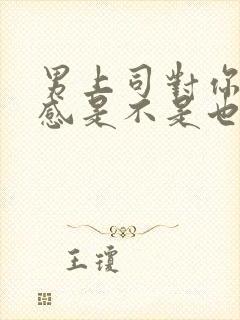 男上司對你
感是不是也
王瓊